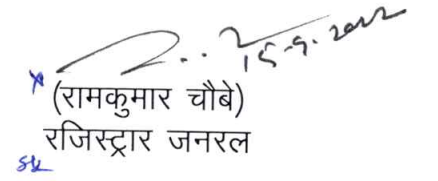 15-9.2022
(रामकुमार चौबे)
रजिस्ट्रार जनरल